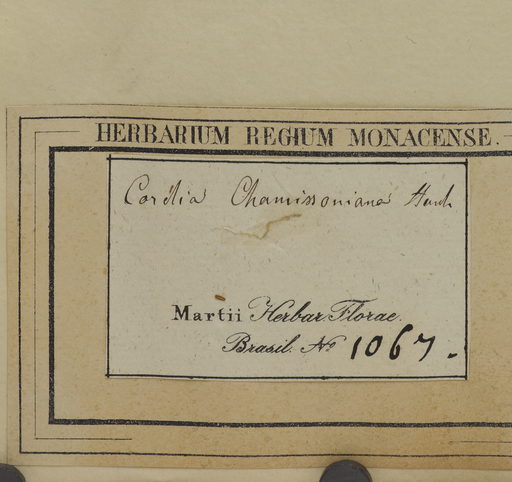 HERBARIUM REGIUM MONACENSE.
Cordia Chamissoniana
Martii Herbar. Florae.
Brasil. No 1067.